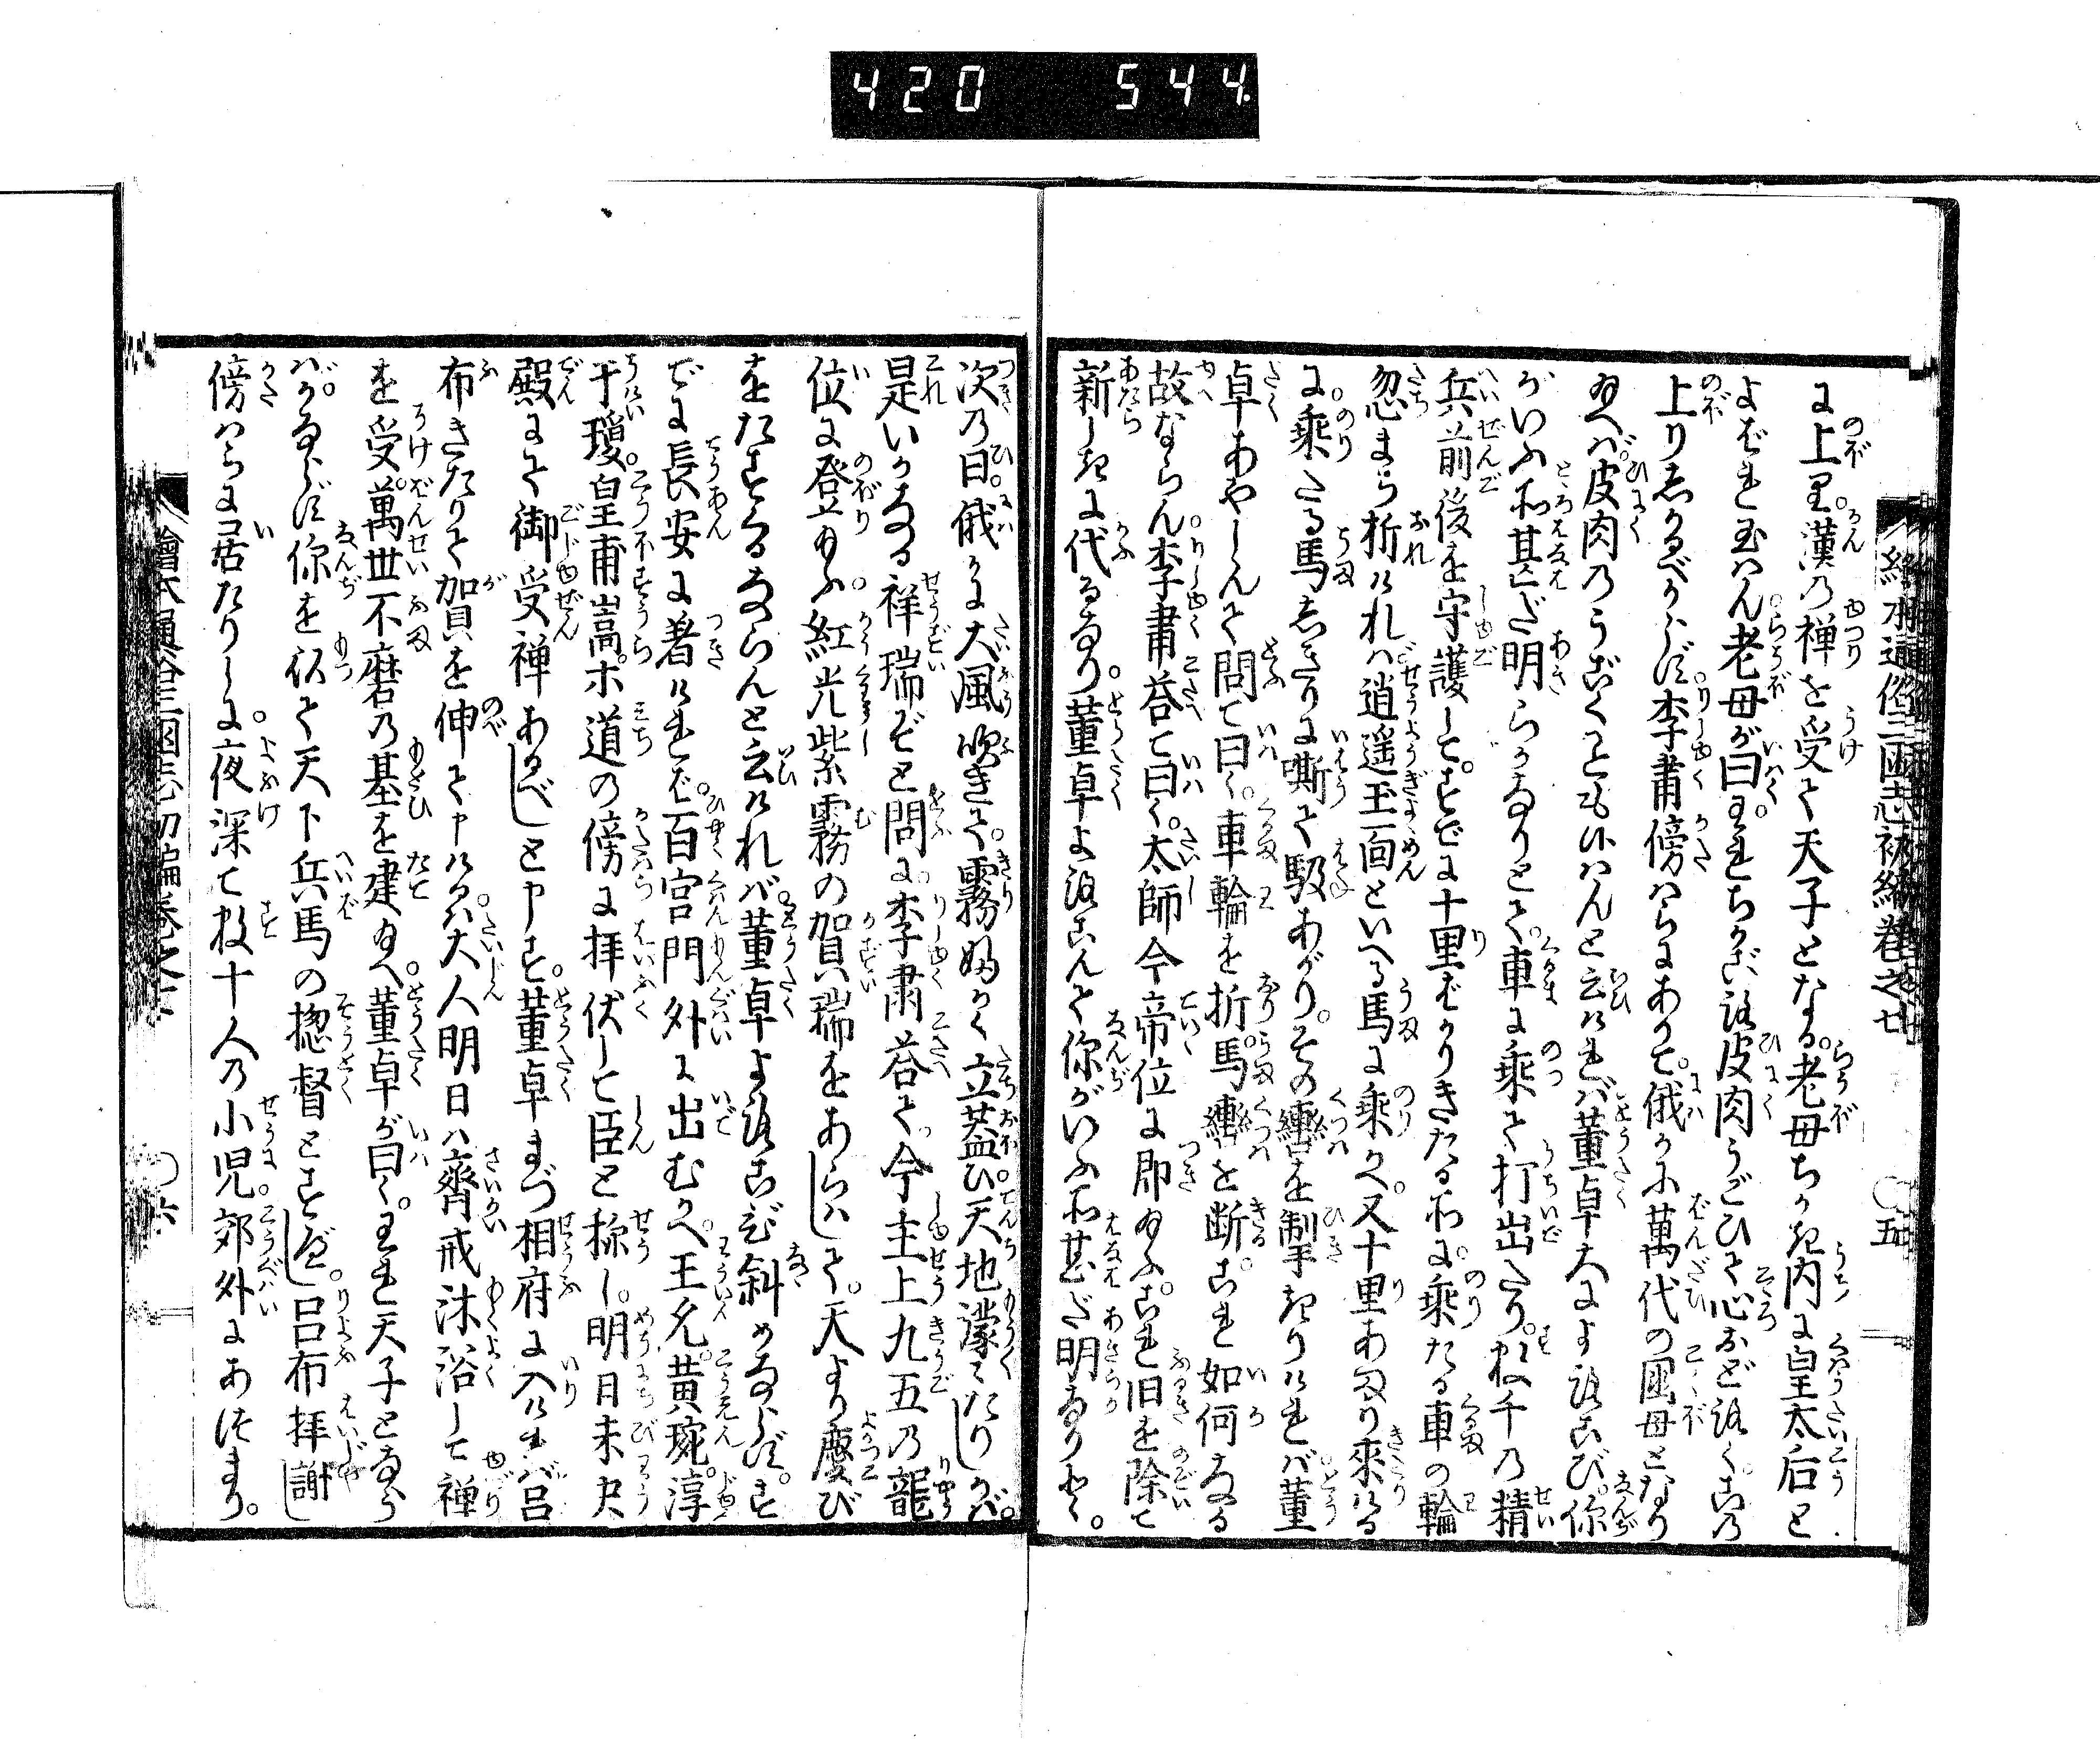 420 544
絵本通俗三国志初編巻之七 〇五
に上り。漢の禅を受て天子となる。老母ちかき内に皇太后と
よばれ玉はん老母が曰。われちかごろ皮肉うごひて心おどろく。この
上りあるべからず李肅傍らにありて。俄かに萬代の国母となり
玉へば。皮肉のうごくことも候はんと云ければ董卓大によろこび。你
がいふ所甚だ明らかなりとて。車に乗て打出たり。数千の精
兵前後を守護して。すでに十里ばかりきたる所に。乗たる車の輪
忽まち折ければ逍遥玉面といへる馬に乗かへ。又十里あまり来ける
に。乗たる馬しきりに嘶て駿あがり。その轡を掣きりければ董
卓あやしんで問て曰く。車輪を折。馬轡を断。これ如何なる
故ならん。李肅荅て曰く。太師今帝位に即玉ふ。これ旧を除て
新しきに代るなり。董卓よろこんで你がいふ所甚だ明なりとぞ。
次の日。俄かに大風吹きて。霧ふかく立蓋ひ。天地濛々たりしかば。
是いかなる祥瑞ぞと問に。李肅荅て。今主上九五の龍
位に登り玉ふ。紅光紫霧の賀瑞をあらはして。天より慶び
をたすくるならんと云ければ。董卓よろこび斜めならず。す
でに長安に着ければ。百官門外に出むかへ。王允。黄琬。淳
于瓊。皇甫嵩。ホ道の傍に拝伏して臣と称し。明日未央
殿にて御受禅あるべしと申す。董卓まづ相府に入ければ呂
布きたりて賀を伸て申けるは。大人明日は齊戒沐浴して禅
を受。萬世不磨の基を建玉へ。董卓が曰く。われ天子となら
ば。かならず你を以て天下兵馬の惣督とすべし。呂布拝謝し
傍はらに居たりしに。夜深て数十人の小児。郊外にあつまり。
繪本通俗三國志初編巻之七 〇六